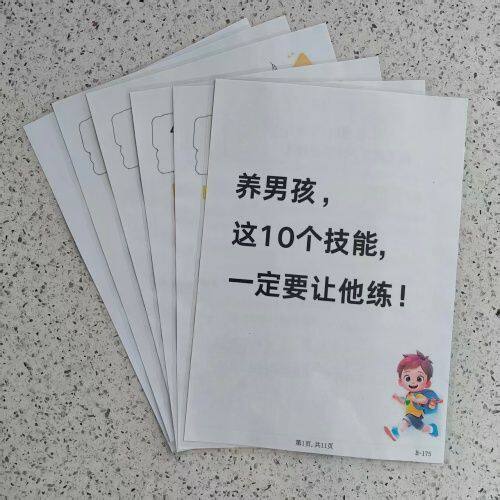 养男孩，
这10个技能，
一定要让他练！
第1页，共11页
B-175